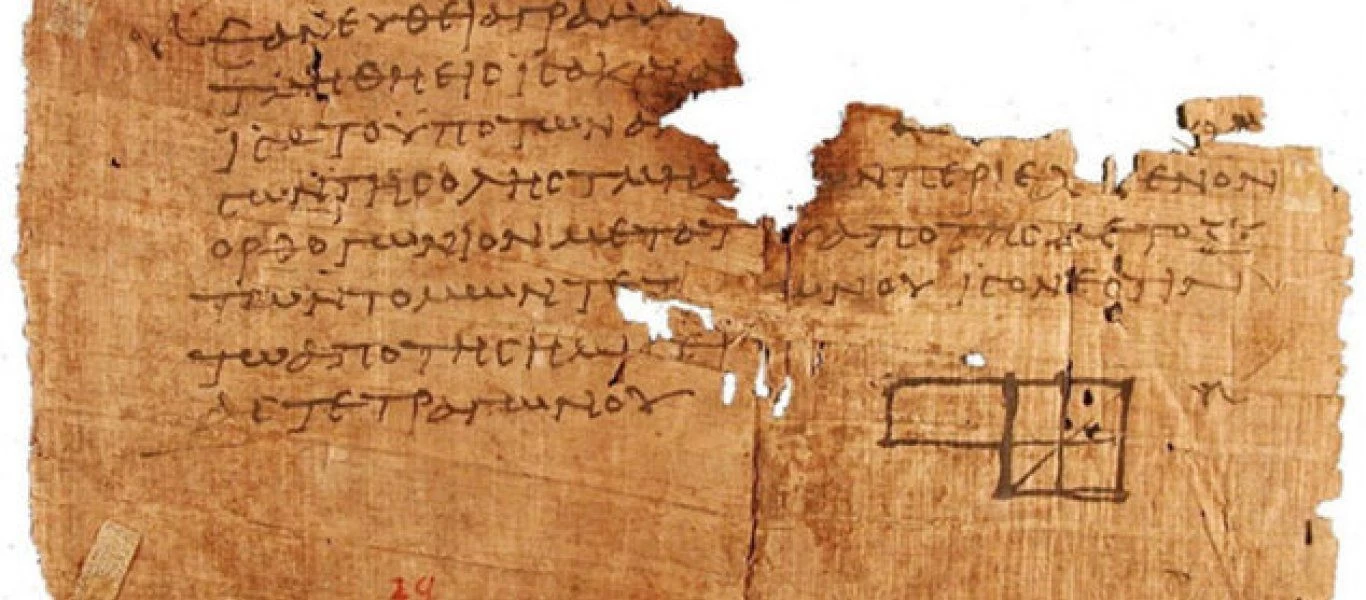 ΕΑΝΕΥΘΕΙΑΓΡΑΜΜ
ΤΜΗΘΗΕΙϹΙϹΑΚΑΙΑ
ΙϹΑΤΟΥΠΟΤΩΝΑ
ϹΩΝΤΗϹΟΛΗϹΤΜΗΜ ΝΠΕΡΙΕΧ ΜΕΝΟΝ
ΟΡΘΟΓΩΝΙΟΝΜΕΤΑΤ ΑΠΟΤΗϹΜΕΤΟΞΥ
ΤΩΝΤΟΜΩΝΤΕΤ ΩΝΟΥ ΙϹΟΝΕϹΤΙΝ
ΤΩΑΠΟΤΗϹΗΜΙ ΕΙ
ΑϹΤΕΤΡΑΓΩΝΟΥ